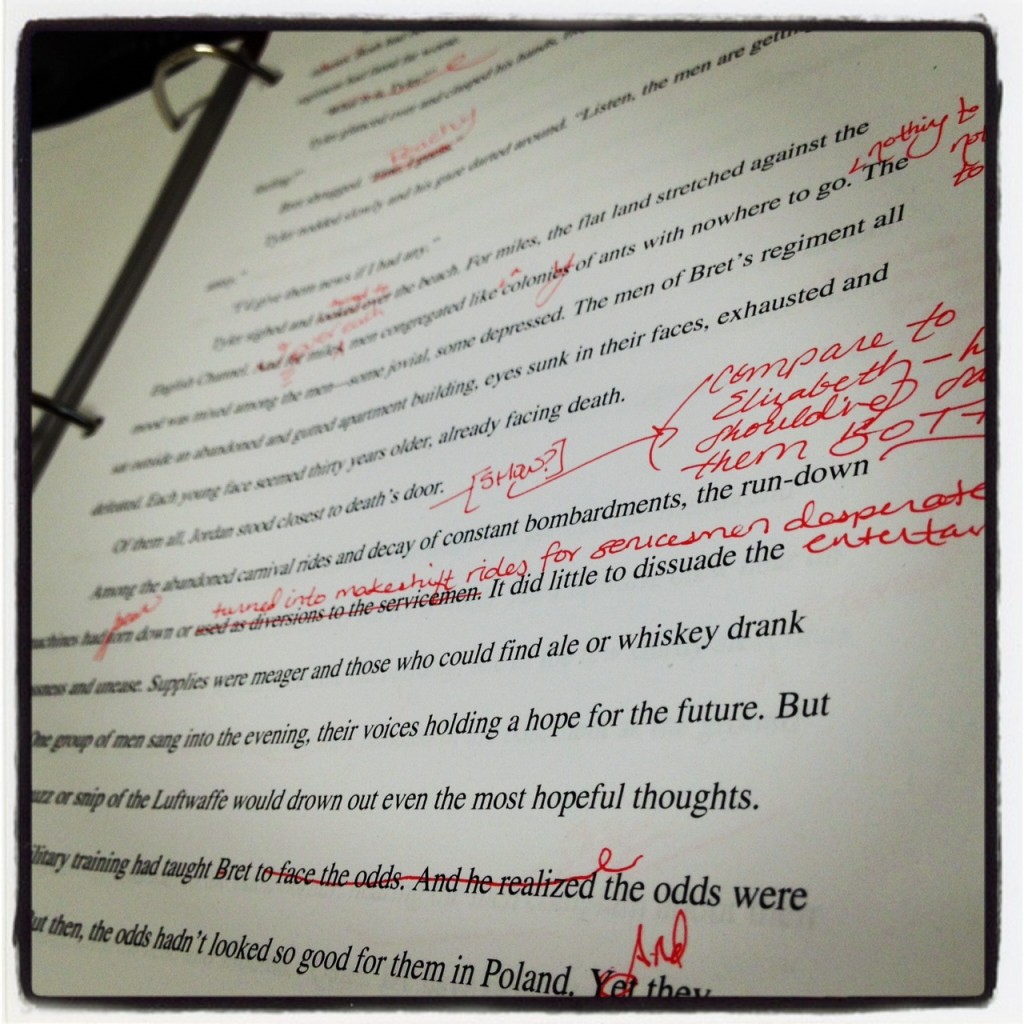 Tyler glanced over and clasped his hands,
Peachy
Bret shrugged.
Tyler nodded slowly and his gaze darted around. "Listen, the men are getting
away."
"I'd give them news if I had any."
Tyler sighed and looked over the beach. For miles, the flat land stretched against the
nothing to
English Channel. And the miles, men congregated like colonies of ants with nowhere to go. The
a
of
mood was mixed among the men—some jovial, some depressed. The men of Bret's regiment all
sat outside an abandoned and gutted apartment building, eyes sunk in their faces, exhausted and
defeated. Each young face seemed thirty years older, already facing death.
Of them all, Jordan stood closest to death's door.
[SHOW?]
compare to
Elizabeth – h
shoulding
them BOTH
Among the abandoned carnival rides and decay of constant bombardments, the run-down
been turned into makeshift rides for servicemen desperate
entertai
machines had torn down or used as diversions to the servicemen. It did little to dissuade the
and unease. Supplies were meager and those who could find ale or whiskey drank
One group of men sang into the evening, their voices holding a hope for the future. But
or snip of the Luftwaffe would drown out even the most hopeful thoughts.
military training had taught Bret to face the odds. And he realized the odds were
And
But then, the odds hadn't looked so good for them in Poland. Yet they